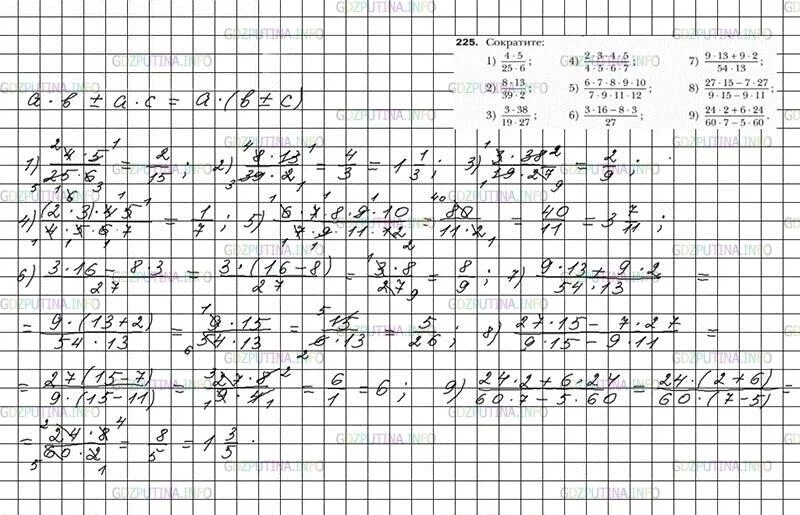 GDZPUTINA.INFO
225. Сократите:
1) 4 · 5 / 25 · 6 ; 4) 2 · 3 · 4 · 5 / 4 · 5 · 6 · 7 ; 7) 9 · 13 + 9 · 2 / 54 · 13 ;
2) 8 · 13 / 39 · 2 ; 5) 6 · 7 · 8 · 9 · 10 / 7 · 9 · 11 · 12 ; 8) 27 · 15 − 7 · 27 / 9 · 15 − 9 · 11 ;
3) 3 · 38 / 19 · 27 ; 6) 3 · 16 − 8 · 3 / 27 ; 9) 24 · 2 + 6 · 24 / 60 · 7 − 5 · 60 .
a · b ± a · c = a · (b ± c)
1) 4 · 5 / 25 · 6 = 2/15 ; 2) 8 · 13 / 39 · 2 = 4/3 = 1 1/3 ; 3) 3 · 38 / 19 · 27 = 2/9 ;
4) (2 · 3) · 4 · 5 / 4 · 5 · 6 · 7 = 1/7 ; 5) 6 · 7 · 8 · 9 · 10 / 7 · 9 · 11 · 12 = 80 / 11 · 2 = 40/11 = 3 7/11 ;
6) 3 · 16 − 8 · 3 / 27 = 3 · (16 − 8) / 27 = 3 · 8 / 27 = 8/9 ; 7) 9 · 13 + 9 · 2 / 54 · 13 =
= 9 · (13 + 2) / 54 · 13 = 9 · 15 / 54 · 13 = 15 / 6 · 13 = 5/26 ; 8) 27 · 15 − 7 · 27 / 9 · 15 − 9 · 11 =
= 27 (15 − 7) / 9 · (15 − 11) = 27 · 8 / 9 · 4 = 6/1 = 6 ; 9) 24 · 2 + 6 · 24 / 60 · 7 − 5 · 60 = 24 · (2 + 6) / 60 · (7 − 5) =
= 24 · 8 / 60 · 2 = 8/5 = 1 3/5 .